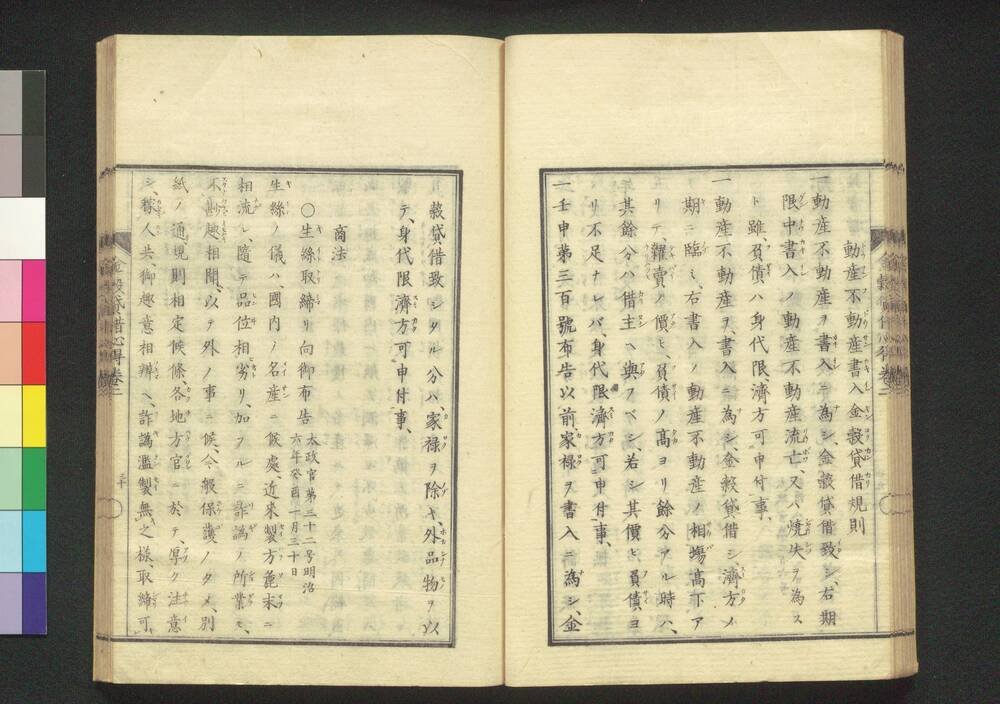 動産不動産書入金穀貸借規則
一動産不動産ヲ書入ニ為シ、金穀貸借致シ、右期
限中書入ノ動産不動産流亡、又ハ焼失ヲ為ス
ト雖、負債ハ身代限済方可申付事、
一動産不動産ヲ、書入ニ為シ、金穀貸借シ濟方ノ
期ニ臨ミ、右書入ノ動産不動産ノ相塲高下ア
リテ、糶賣ノ價ヒ、負債ノ高ヨリ餘分アル時ハ、
其餘分ハ借主ヘ與フベシ、若シ其價ヒ、負債ヨ
リ不足ナレバ、身代限濟方可申付事、
一壬申第三百號布告以前、家禄ヲ書入ニ為シ、金
穀貸借致シタル分ハ、家禄ヲ除キ、外品物ヲ以
テ、身代限濟方可申付事、
商法
○生絲取締リ向御布告 太政官第三十二号明治
六年癸酉一月三十日
生絲ノ儀ハ、國内ノ名産ニ候處、近来製方麁末ニ
相流レ隨テ品位相劣リ、加フルニ詐譌ノ所業モ
不尠趣相聞、以テ外ノ事ニ候、今般保護ノタメ、別
紙ノ通規則相定候條、各地方官ニ於テ、厚ク注意
シ、稼人共御趣意相辨ヘ、詐譌濫製無之樣、取締可
金穀貸借心得 卷二